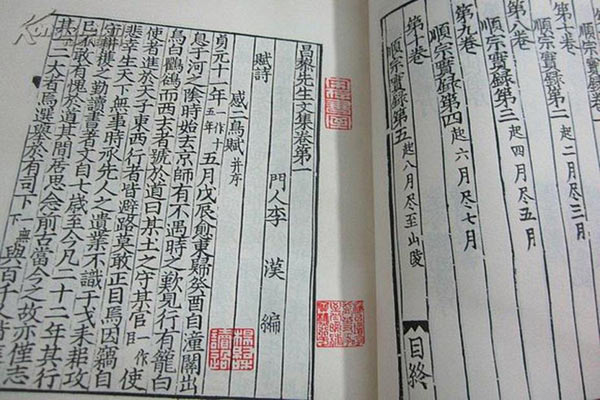 第七卷
順宗實錄第二 起二月尽三月
第八卷
順宗實錄第三 起四月尽五月
第九卷
順宗實錄第四 起六月尽七月
第十卷
順宗實錄第五 起八月尽至山陵
目終
昌黎先生文集卷第一
門人李漢編
賦詩
感二鳥賦 并序
貞元十一年 一作十五年 五月戊辰愈東歸癸酉自潼關出
息于河之陰時始去京師有不遇時之歎見行有籠白
烏白鸜鵒而西者號於道曰某土之守某官 一作曰 使
使者進於天子東西行者皆避路莫敢正目焉因竊自
悲幸生天下無事時承先人之遺業不識干戈耒耜攻
守耕穫之勤讀書著文自七歲至今凡二十二年其行
已不敢有愧於道其閒居思念前古當今之故亦僅志
其一二大者焉選舉於有司 與百千人偕